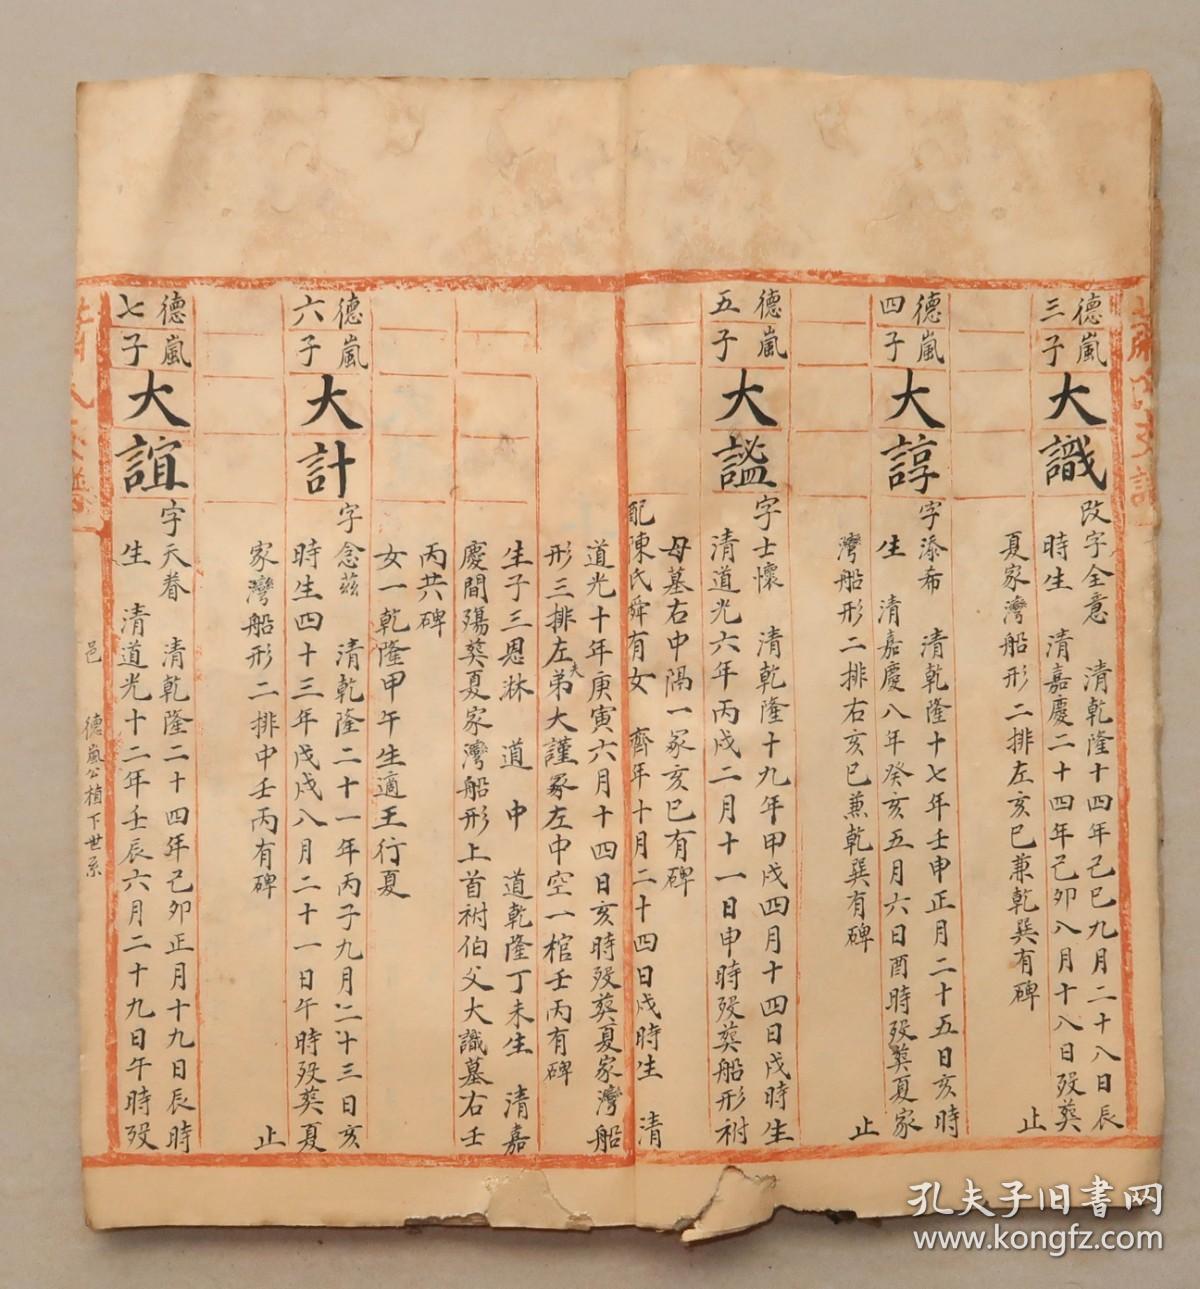 德嵐
三子
大識
改字全意 清乾隆十四年己巳九月二十八日辰
時生 清嘉慶二十四年己卯八月十八日歿葬
夏家灣船形二排左亥巳兼乾巽有碑 止
德嵐
四子
大諄
字添希 清乾隆十七年壬申正月二十五日亥時
生 清嘉慶八年癸亥五月六日酉時歿葬夏家
灣船形二排右亥巳兼乾巽有碑 止
德嵐
五子
大謐
字士懷 清乾隆十九年甲戌四月十四日戌時生
清道光六年丙戌二月十一日申時歿葬船形祔
母墓右中隔一冢亥巳有碑
配陳氏舜有女 齊年十月二十四日戌時生 清
道光十年庚寅六月十四日亥時歿葬夏家灣船
形三排左夫弟大謹冢左中空一棺壬丙有碑
生子三恩淋 道中 道乾隆丁未生 清嘉
慶間殤葬夏家灣船形上首祔伯父大識墓右壬
丙共碑
女一乾隆甲午生適王行夏
德嵐
六子
大計
字念茲 清乾隆二十一年丙子九月二十三日亥
時生四十三年戊戌八月二十一日午時歿葬夏
家灣船形二排中壬丙有碑 止
德嵐
七子
大誼
字天眷 清乾隆二十四年己卯正月十九日辰時
生 清道光十二年壬辰六月二十九日午時歿
邑 德嵐公楨下世系
孔夫子旧书网
www.kongfz.com